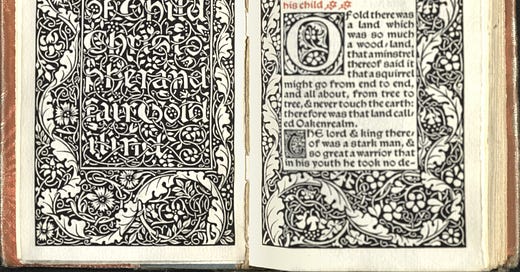 Of Child
Christo
pher and
fair Gold
ilind
his child
Of old there was
a land which
was so much
a wood-land,
that a minstrel
thereof said it
that a squirrel
might go from end to end,
and all about, from tree to
tree, & never touch the earth:
therefore was that land call-
ed Oakenrealm.
The lord & king there-
of was a stark man, &
so great a warrior that
in his youth he took no de-